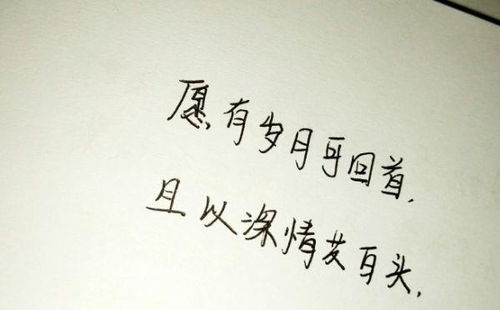 愿有岁月可回首,
且以深情共白头,